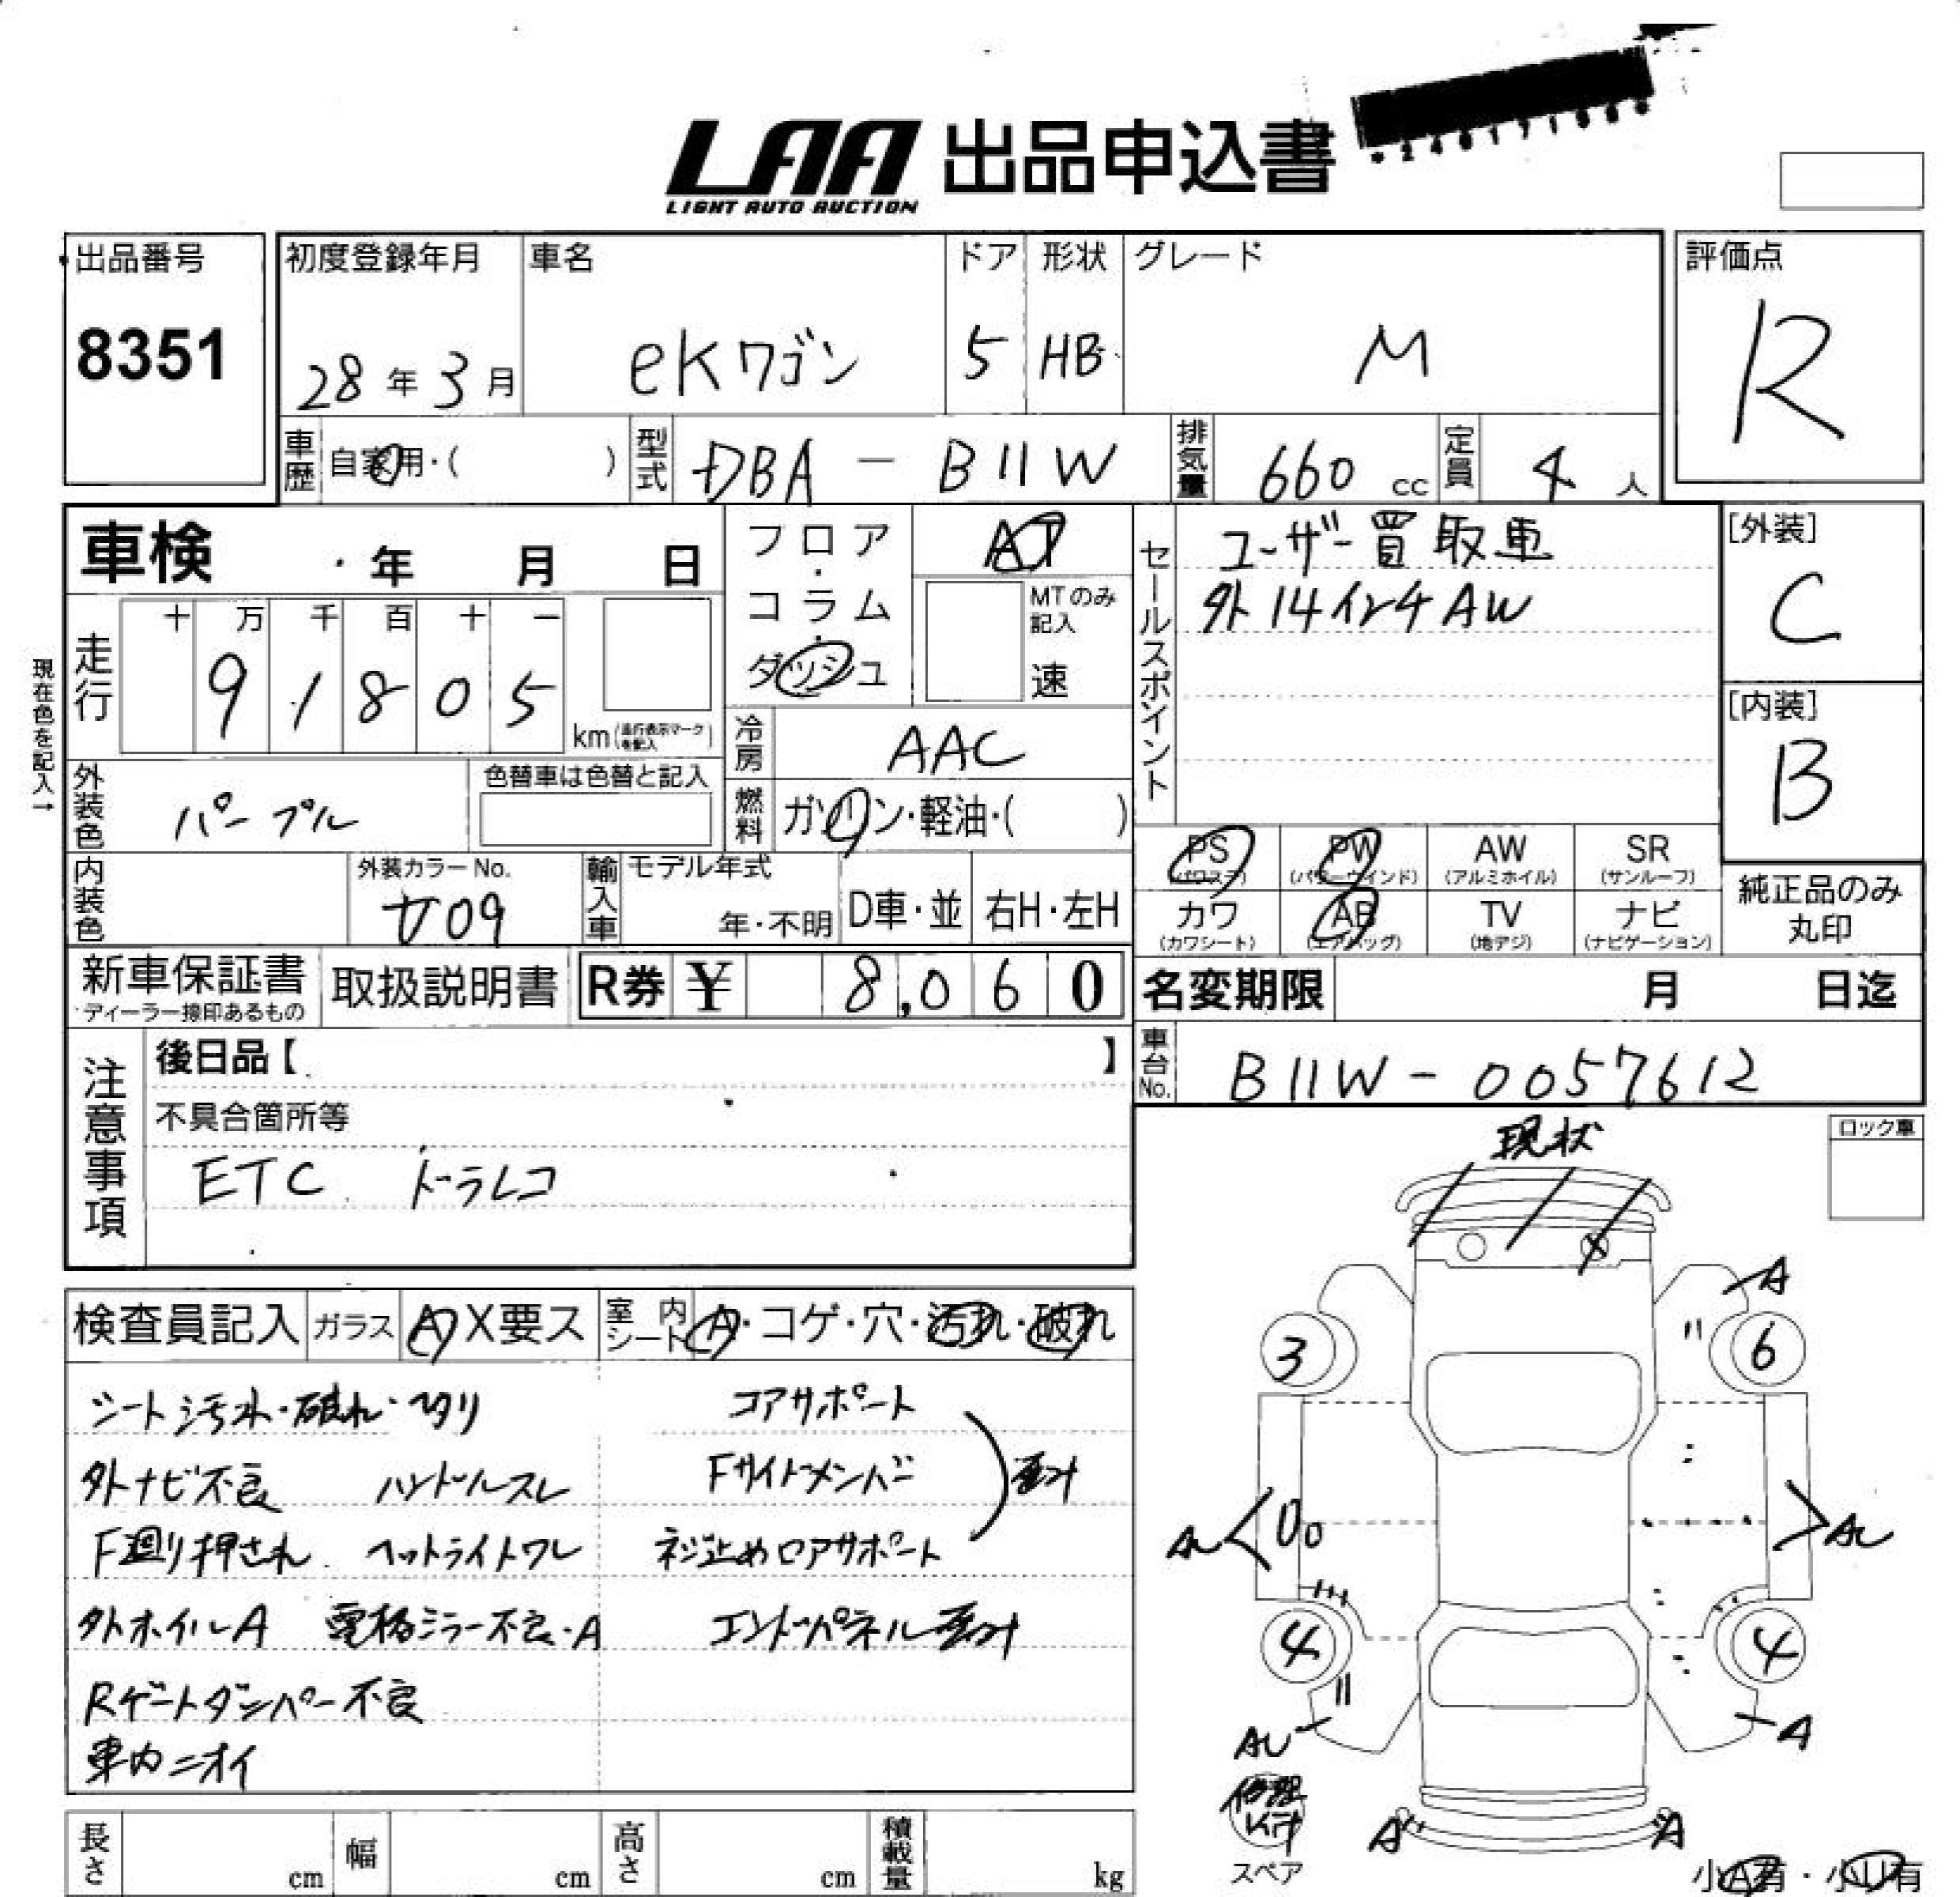 LAA 出品申込書
LIGHT AUTO AUCTION
出品番号
8351
初度登録年月
28年3月
車名
eKワゴン
ドア
5
形状
HB
グレード
M
評価点
R
車歴
自家用・( )
型式
DBA - B11W
排気量
660 cc
定員
4 人
車検 ・年 月 日
フロア・コラム・ダッシュ
AT
MTのみ記入
速
セールスポイント
ユーザー買取車
外14インチAW
[外装]
C
[内装]
B
現在色を記入→
走行
十 万 千 百 十 一
9 1 8 0 5
km (走行表示マークを記入)
冷房
AAC
外装色
パープル
色替車は色替と記入
燃料
ガソリン・軽油・( )
PS (パワステ)
PW (パワーウインド)
AW (アルミホイル)
SR (サンルーフ)
カワ (カワシート)
AB (エアバッグ)
TV (地デジ)
ナビ (ナビゲーション)
純正品のみ丸印
内装色
外装カラーNo.
T09
輸入車
モデル年式
年・不明
D車・並
右H・左H
新車保証書
ディーラー捺印あるもの
取扱説明書
R券 ¥ 8,060
名変期限 月 日迄
注意事項
後日品【 】
不具合箇所等
ETC ドラレコ
車台No.
B11W-0057612
現状
ロック車
検査員記入
ガラス
A X要ス
室内シート
A・コゲ・穴・汚れ・破れ
シート汚れ・破れ・ヘタリ
外ナビ不良 ハンドルスレ
F廻り押され ヘットライトワレ
外ホイルA 電格ミラー不良・A
Rゲートダンパー不良
車内ニオイ
コアサポート
Fサイドメンバー
ネジ止めロアサポート
歪み
エンドパネル歪み
A
3
6
AU
AU
4
4
AU
A
修理Kit
スペア
A
A
小A有・小U有
長さ cm
幅 cm
高さ cm
積載量 kg